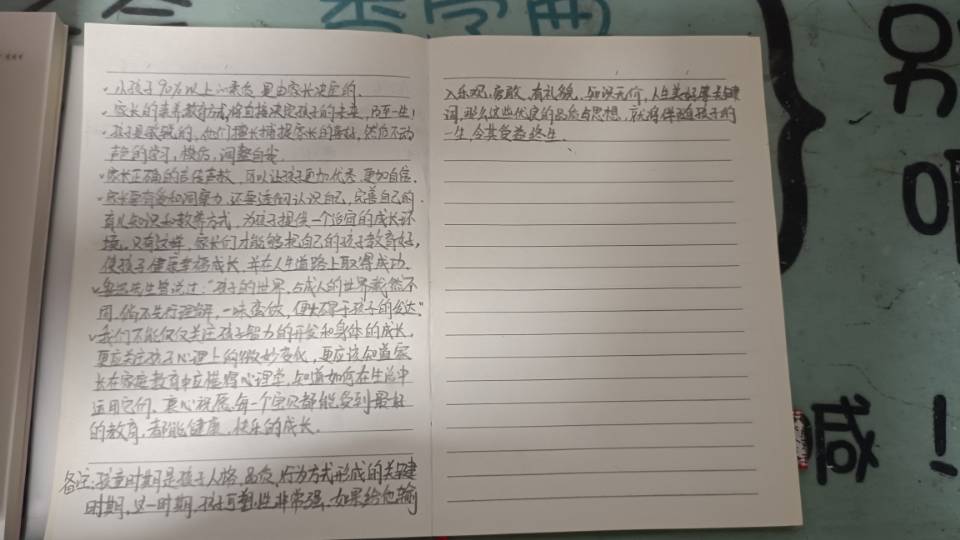 · 小孩子90%以上的未来，是由家长决定的。
· 家长的素养教育方式，将直接决定孩子的未来，乃至一生！
· 孩子是敏锐的，他们擅长捕捉家长的，然后不动
声色的学习，模仿，调整自我。
· 家长正确的言传声教，可以让孩子更加优秀，更加自信。
· 家长要有爱和洞察力，还要适们认识自己，完善自己的
育儿知识和教养方式，为孩子提供一个适宜的成长环
境，只有这样，家长们才能够把自己的孩子教育好，
使孩子健康幸福成长，并在人生道路上取得成功。
· 鲁迅先生曾说过："孩子的世界，与成人的世界截然不
同，倘不先行理解，一味蛮做，便大碍于孩子的发达"
· 我们不能仅仅关注孩子智力的开发和身体的成长，
更应关注孩子心理上的微妙变化，更应该知道家
长在家庭教育中应懂得心理学，知道如何在生活中
运用它们，衷心祝愿每一个宝贝都能受到最好
的教育，都能健康，快乐的成长。
备注：孩童时期是孩子人格，品质，行为方式形成的关键
时期，这一时期，孩子可塑性非常强，如果给他输
入乐观，勇敢，有礼貌，知识无价，人生美好等关键
词，那么这些优良的品质与思想，就将伴随孩子的
一生，令其受益终生。
别
吧
！